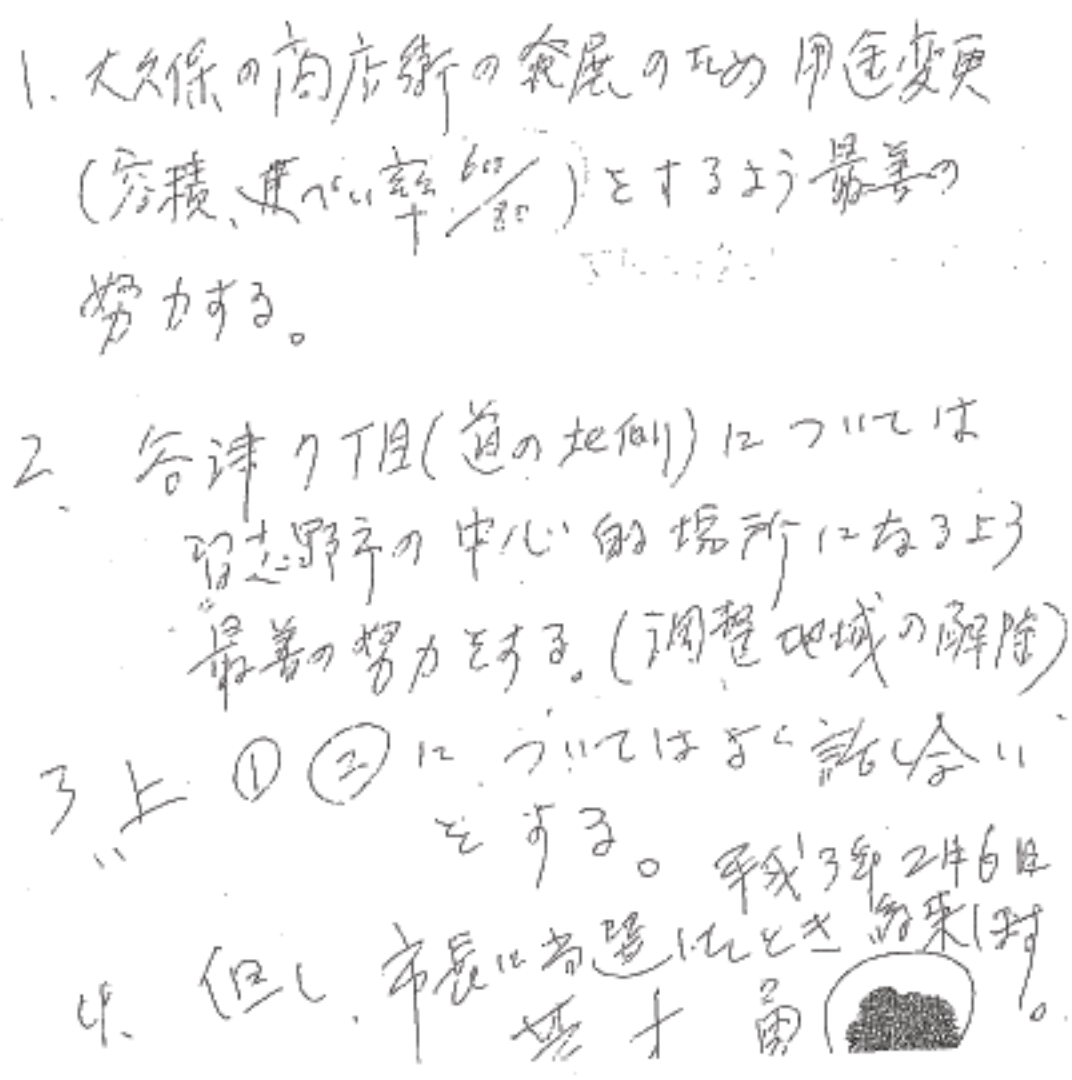 1. 大久保の商店街の発展のため用途変更
(容積、建ぺい率 600/80)をするよう最善の
努力する。
2. 谷津7丁目(道の北側)については
習志野市の中心的場所になるよう
最善の努力をする。(調整地域の解除)
3 上 ① ② についてはよく話し合い
をする。
平成3年2月6日
4. 但し、市長に当選したとき 約束します。
荒木 勇